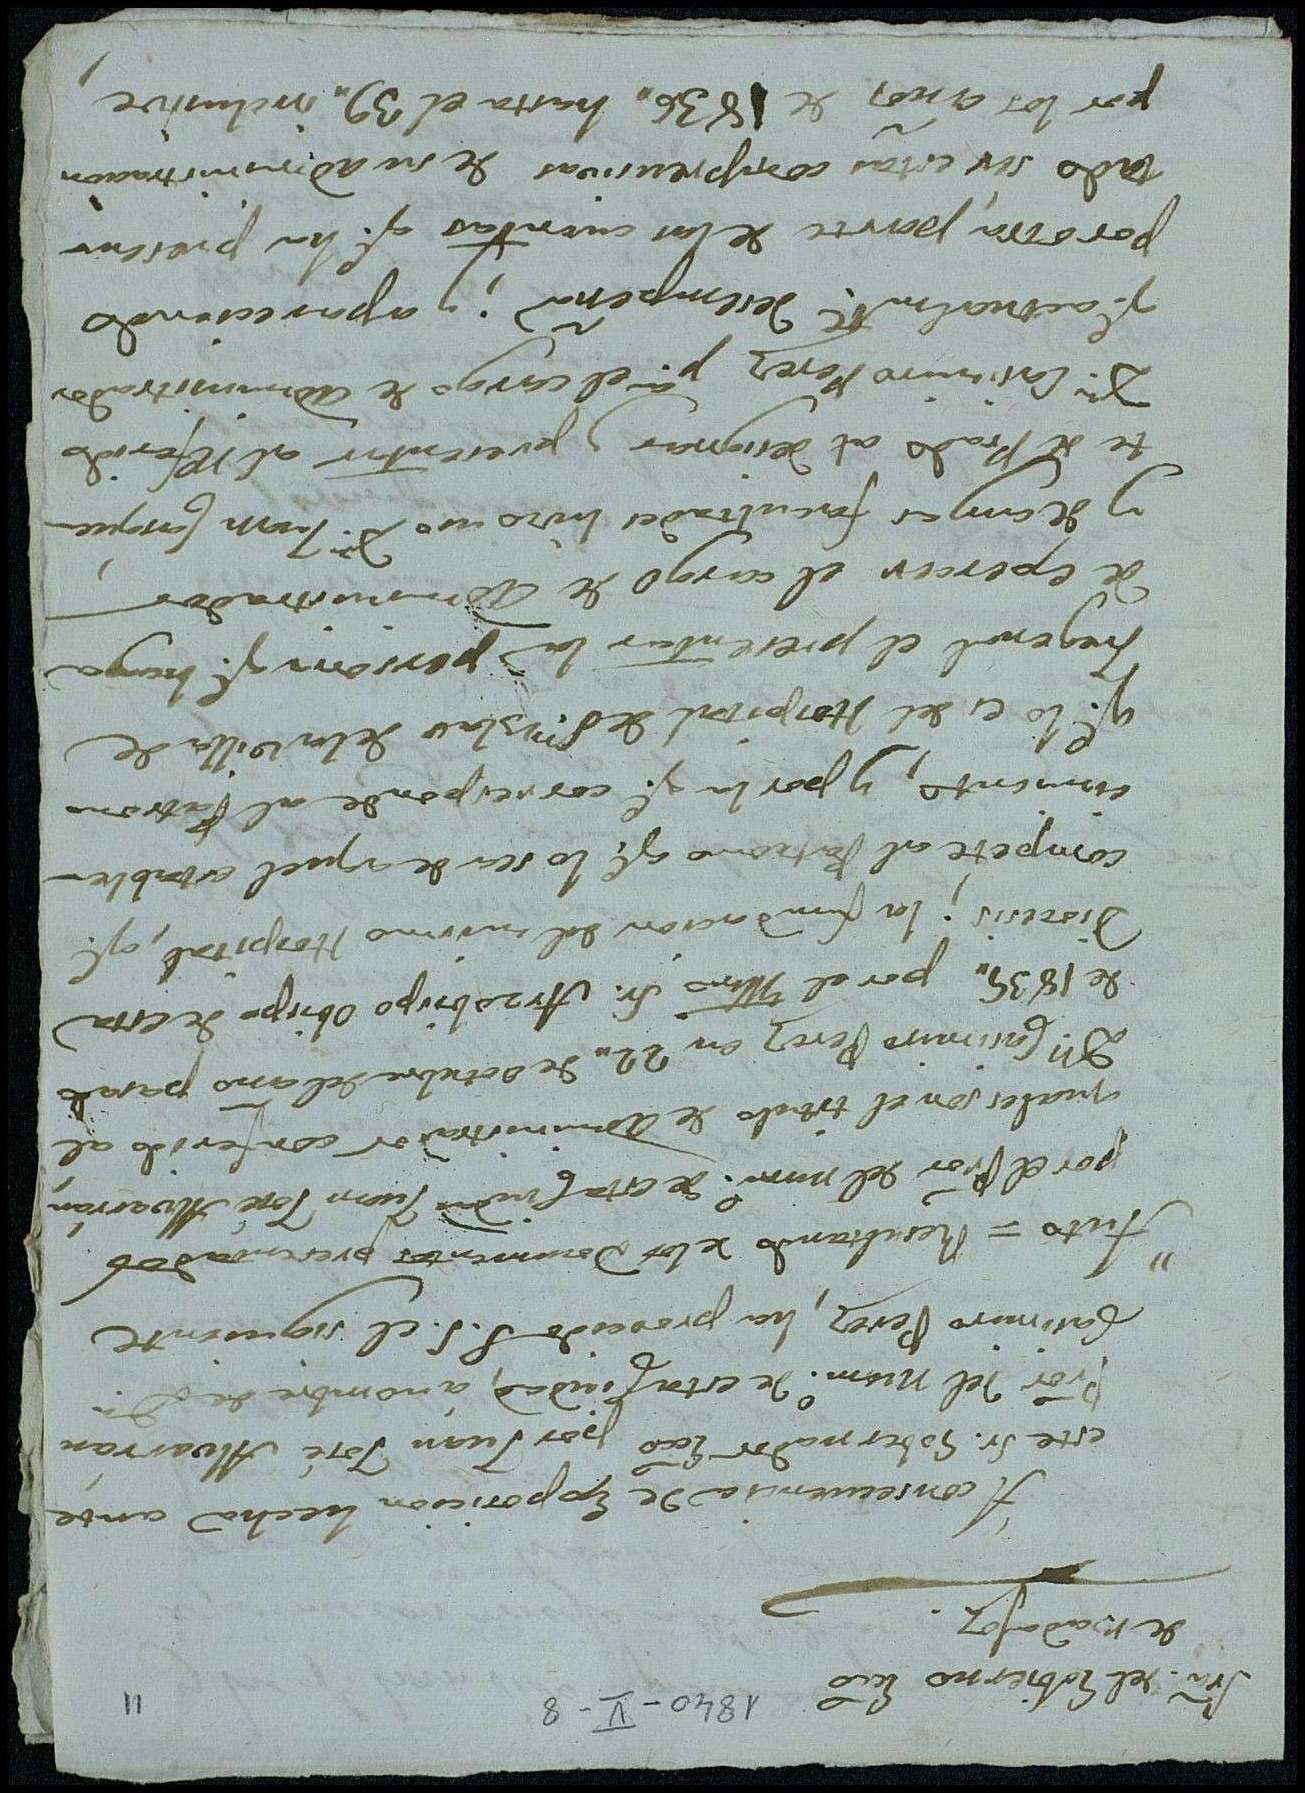 1840 - V - 8
11
Sria. del Gobierno Ecco
de Badajoz.
A consecuencia de Exposicion hecha ante
este Sr. Gobernador Ecco por Juan José Alvarrán
Pror del Num.º de esta Ciudad, a nombre de D.n
Casimiro Perez, ha proveido S.S. el siguiente
" Auto = Resultando de los documentos presentados
por el Pror del num.º de esta Ciudad Juan José Alvarrán,
quales son el titulo de Administrador conferido al
D.n Casimiro Perez en 22,, de octubre del año pasado
de 1835,, por el Yllmo Sr. Arzobispo Obispo de esta
Diocesis; la fundacion del mismo Hospital, q.e
compete al Patrono q.e lo sea de aquel estable-
cimiento, y por la q.e corresponde al Patrono
q.e lo es del Hospital de S.n Blas de la Villa de
Fregenal el presentar la persona q.e haya
de egercer el cargo de Administrador
y de cuyas facultades hizo uso D.n Juan Jasque-
te de Prado al designar y presentar al referido
D.n Casimiro Perez p.a el cargo de Administrador
q.e actualm.te desempeña; y apareciendo
por otra parte de las cuentas q.e ha presen-
tado ser estas comprensivas de su administracion
por los años de 1836,, hasta el 39,, inclusive